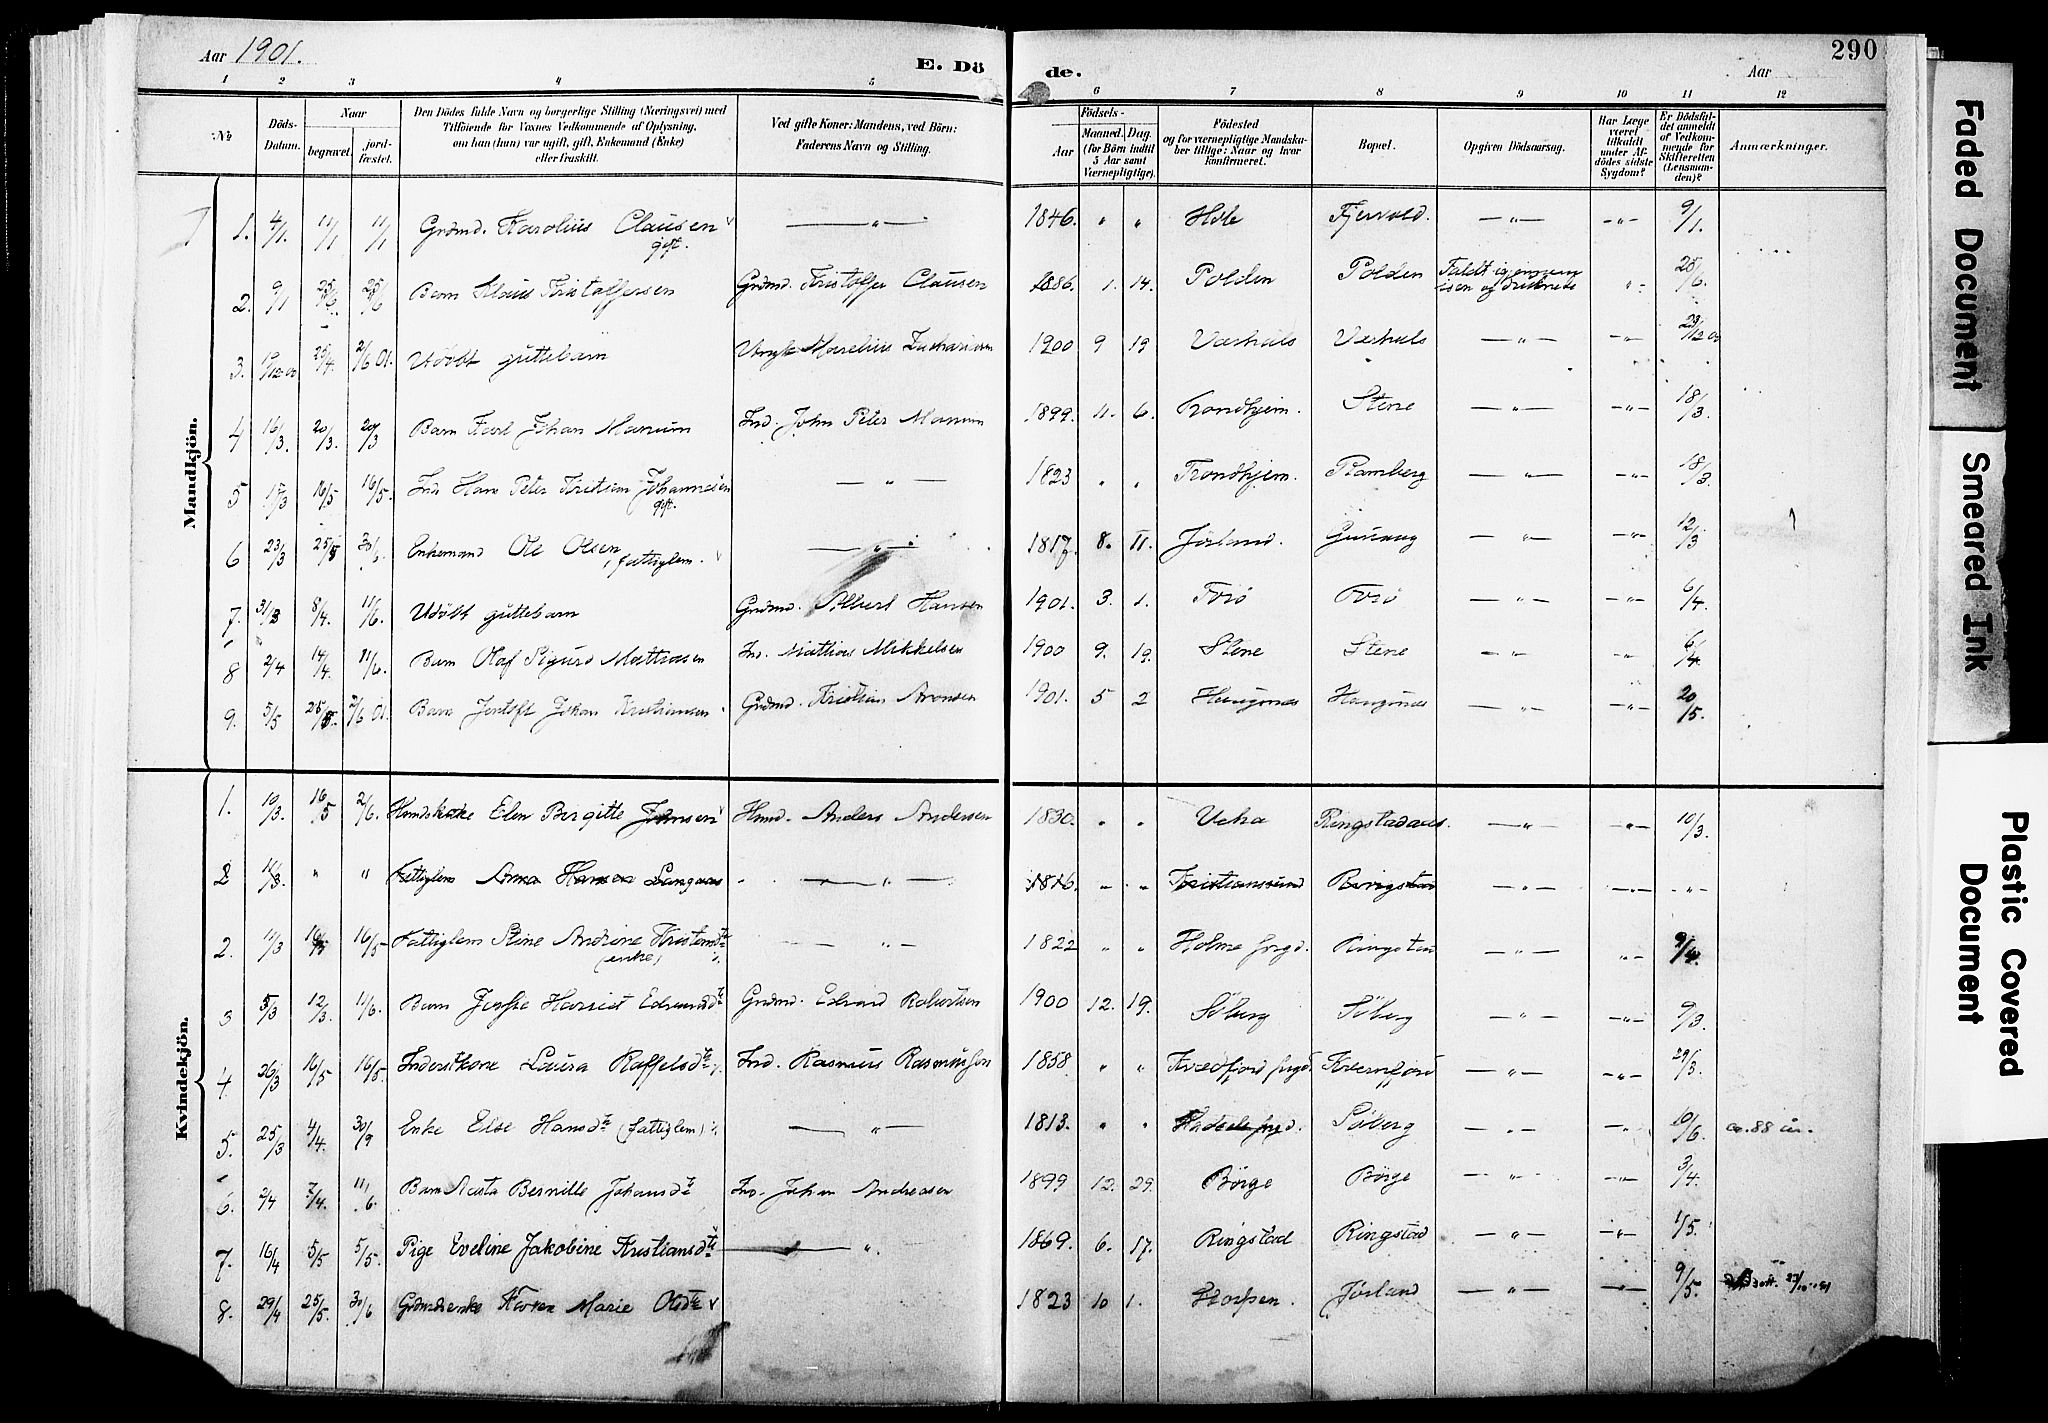 Aar 1901.
E. Dö
de.
Aar
290
1 2 3 4 5 6 7 8 9 10 11 12
No
Döds-
Datum.
Naar
begravet.
jord-
fæstet.
Den Dödes fulde Navn og borgerlige Stilling (Næringsvei) med
Tilföiende for Voxnes Vedkommende af Oplysning,
om han (hun) var ugift, gift, Enkemand (Enke)
eller fraskilt.
Ved gifte Koner: Mandens, ved Börn:
Faderens Navn og Stilling.
Födsels-
Aar
Maaned. Dag.
(for Börn indtil
5 Aar samt
Værnepligtige).
Födested
og for værnepligtige Mandska-
ber tillige: Naar og hvor
konfirmeret.
Bopæl.
Opgiven Dödsaarsag.
Har Læge
været
tilkaldt
under Af-
dödes sidste
Sygdom?
Er Dödsfal-
det anmeldt
af Vedkom-
mende for
Skifteretten
(Lensman-
den)?
Anmærkninger.
Mandkjön.
1. 4/1. 11/1 11/1 Grdmd. Karolius Clausen gift. — " — 1846. " " Hole Fjervold. — " — — " — 9/1.
2. 9/1 25/6 25/6 Barn Klaus Kristoffersen Grdmd. Kristoffer Clausen 1886. 1. 14. Polden Polden Faldt igjennem
isen og druknede " — 25/6.
3. 25/4. 2/6 01. Udöbt guttebarn Marelius Zachariasen 1900 9 19 — " — — " —
4 16/3. 20/3. 20/3 Barn Karl Johan Manum Ind. John Peter Manum 1899. 11. 6. Trondhjem. Stene — " — — " — 18/3.
5 17/3 16/5 16/5. Ind. Hans Peter Kristian Johannesen gift. — " — 1823 " " Trondhjem. Ramberg — " — — " — 18/3.
6 23/3 Enkemand Ole Olsen, fattiglem. — " — 1817. 8. 11. Jörland. — " — — " — 12/3
7. 31/3 8/4. 11/6. Udöbt guttebarn Grdmd. Albert Hansen 1901. 3. 1. — " — — " — 6/4.
8 2/4 14/4. 11/6. Barn Olaf Sigurd Mathiasen Ind. Mathias Mikkelsen 1900 9. 19. Stene Stene — " — — " — 6/4
9. 5/5 25/5. 2/6 01. Barn Johan Kristiansen Grdmd. Kristian Aronsen 1901. 5 2 Haugsnes Haugsnes — " — — " — 20/5.
Kvindekjön.
1. 10/3. 16/5 2/6. Elen Birgitte Jansen Anders Andersen 1830. " " Ringstadaas. — " — — " — 10/3.
2 " " Fattiglem Anna Hansen — " — 1816. " " Kristianssund Ringstad — " — — " — — " —
2. 11/3 16/5 16/5 Fattiglem Stine Andrine (enke) — " — 1822 " " Ringstad — " — — " — 9/4.
3 5/3 12/3. 11/6. Barn Harriet Edvardsdtr Grdmd. Edvard Robertsen 1900 12. 19. Söberg Söberg — " — — " — 9/3.
4. 26/3 16/5 16/5. Inderstkone Laura Raffelsdtr Ind. Rasmus Rasmussen 1858. " " — " — — " — 29/3.
5. 25/3 4/4. 30/9 Enke Else Hansdtr (fattiglem) — " — 1813. " " Hadsel Söberg — " — — " — 10/6. ca. 88 år.
6. 2/4 7/4. 11/6. Barn Bernille Johansdtr Ind. Johan Andreasen 1899 12. 29. Börge Börge — " — — " — 3/4.
7. 16/4 5/5 5/5. Pige Eveline Jakobine Kristiansdtr — " . 1869. 6. 17. Ringstad Ringstad — " — — " — 1/5.
8. 29/4 25/5. 30/6 Karen Marie Olsdtr 1823 10 1. Jörland — " — — " — 9/5.
Faded Document
Smeared Ink
Plastic Covered
Document